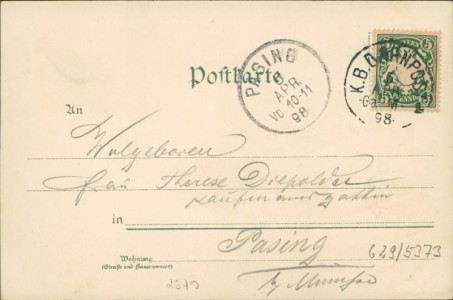 PASING
5
APR
VO 10-11
98.
Postkarte
K.B. BAHNPOST
5
98.
5
An
Wolgeboren
Frau Therese Diepolder
Kaufmanns Gattin
in Pasing
Wohnung
(Straße und Hausnummer)
b/ München
629/5373